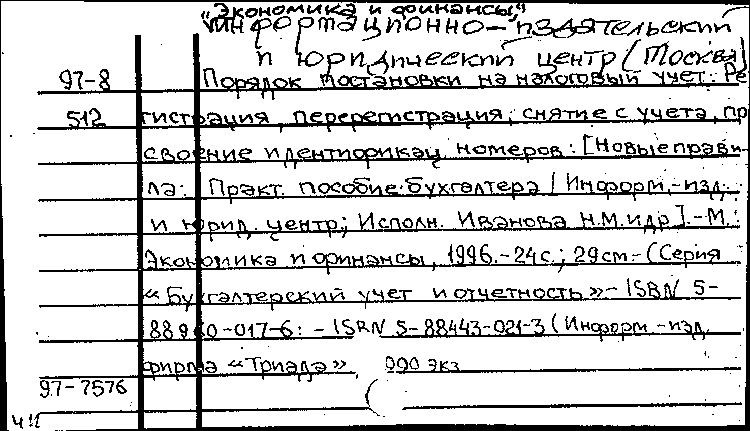 "Экономика и финансы,"
информационно-издательский
и юридический центр (Москва)
97-8 Порядок постановки на налоговый учет: Ре
512 гистрация, перерегистрация, снятие с учета, пр
своение идентификац. номеров: [Новые прави-
ла: Практ. пособие бухгалтера / Информ.-изд.
и юрид. центр; Исполн. Иванова Н.М. и др]. - М.:
Экономика и финансы, 1996. - 24с.; 29см - (Серия
«Бухгалтерский учет и отчетность» - ISBN 5-
88960-017-6: - ISBN 5-88443-021-3 (Информ.-изд.
фирма «Триада» 990 экз
97-7576